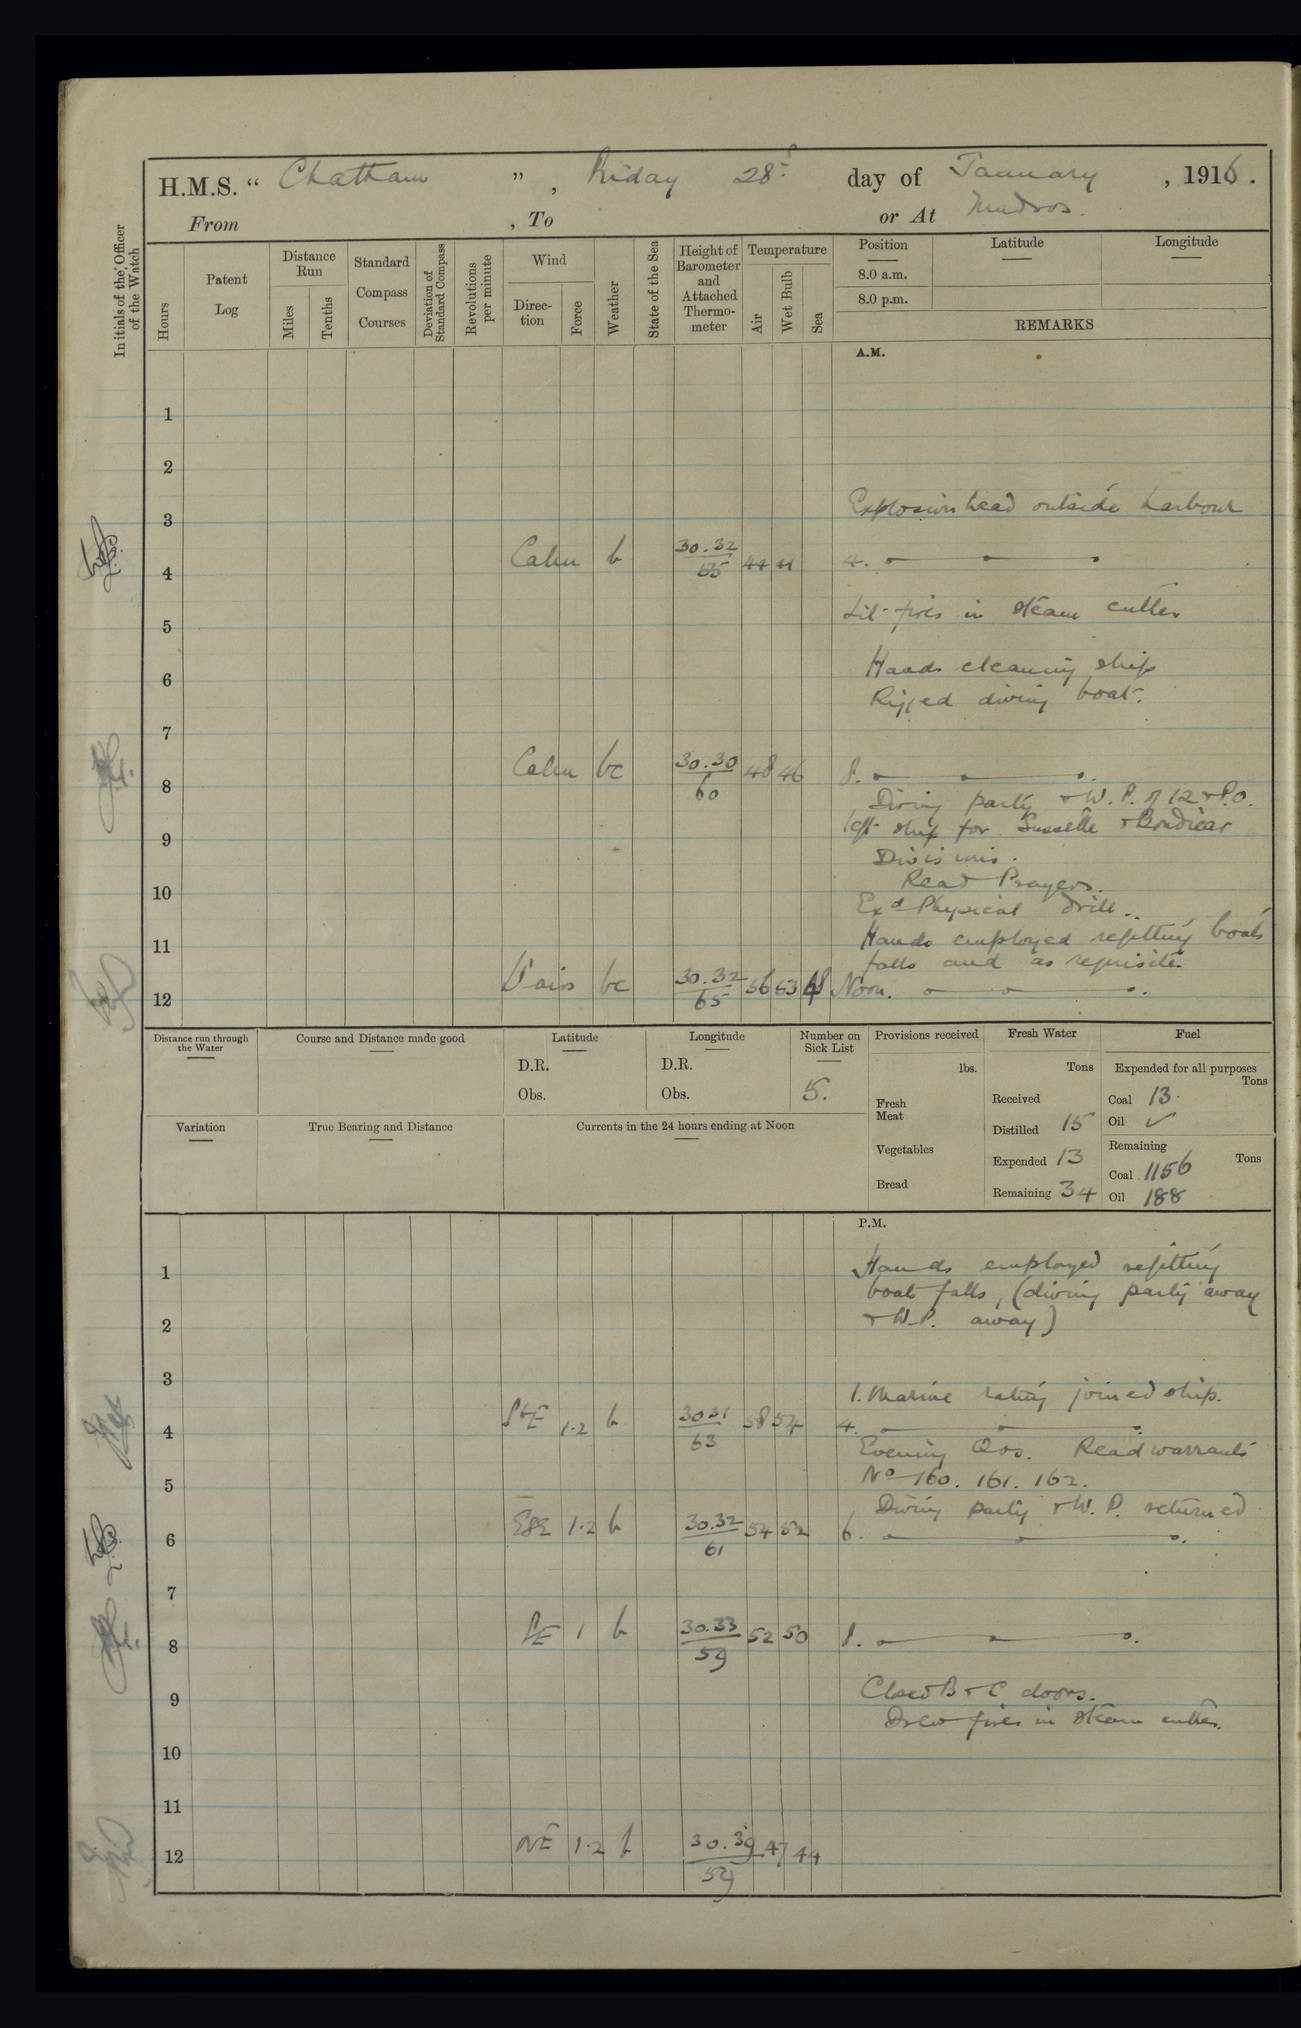 H.M.S. “ Chatham ” , Friday 28th day of January , 1916 .
From , To or At Mudros.
Initials of the Officer of the Watch
Hours
Patent Log
Distance Run
Miles
Tenths
Standard Compass Courses
Deviation of Standard Compass
Revolutions per minute
Wind
Direc-tion
Force
Weather
State of the Sea
Height of Barometer and Attached Thermo-meter
Temperature
Air
Wet Bulb
Sea
Position
Latitude
Longitude
8.0 a.m.
8.0 p.m.
REMARKS
A.M.
1
2
Explosion head outside harbour
3
Calm b 30.32 44 41 4.
4 65
Lit fires in steam cutter
5
Hands cleaning ship
6
Rigged diving boat.
7
Calm bc 30.30 48 46 8.
8 60
Diving party & W.P. of 12 & P.O.
left ship for &
9
Divisions.
Read Prayers.
10
Exd Physical drill.
Hands employed refitting boats
11
falls and as requisite.
L' airs bc 30.32 56 53 48 Noon.
12 65
Distance run through the Water
Course and Distance made good
Latitude
D.R.
Obs.
Longitude
D.R.
Obs.
Number on Sick List
5.
Provisions received
lbs.
Fresh Meat
Vegetables
Bread
Fresh Water
Tons
Received
Distilled 15
Expended 13
Remaining 34
Fuel
Expended for all purposes
Tons
Coal 13.
Oil ✓
Remaining
Tons
Coal 1156
Oil 188
Variation
True Bearing and Distance
Currents in the 24 hours ending at Noon
P.M.
Hands employed refitting
1
boats falls, (diving party away
& W.P. away)
2
3
1. Marine rating joined ship.
SE 1.2 b 30 31 58 54 4.
4 63
Evening Qrs. Read warrants
No 160. 161. 162.
5
Diving party & W.P. returned
ESE 1.2 b 30.32 54 52 6.
6 61
7
SE 1 b 30.33 52 50 8.
8 59
Closed B & C doors.
9
Drew fires in steam cutter.
10
11
NE 1.2 b 30.39 47 44
12 59